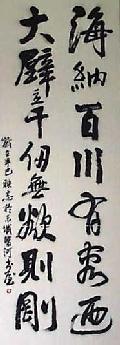 海納百川有容迺
大壁立千仞無欲則剛
辛巳